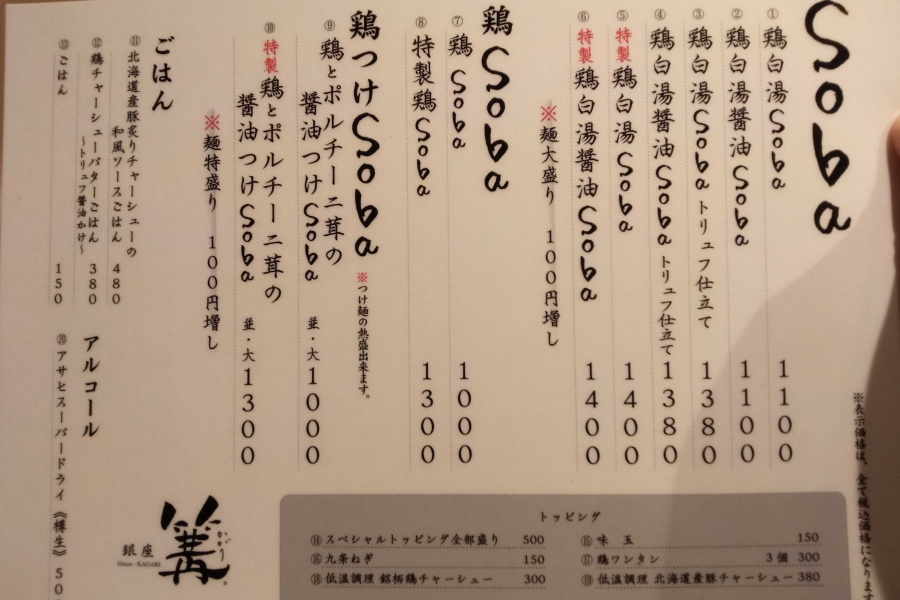 Soba
① 鶏白湯Soba 1100
② 鶏白湯醤油Soba 1100
③ 鶏白湯Soba トリュフ仕立て 1380
④ 鶏白湯醤油Soba トリュフ仕立て 1380
⑤ 特製 鶏白湯Soba 1400
⑥ 特製 鶏白湯醤油Soba 1400
※麺大盛り 100円増し
鶏Soba
⑦ 鶏Soba 1000
⑧ 特製鶏Soba 1300
鶏つけSoba ※つけ麺の熱盛出来ます。
⑨ 鶏とポルチーニ茸の
醤油つけSoba 並・大 1000
⑩ 特製 鶏とポルチーニ茸の
醤油つけSoba 並・大 1300
※麺特盛り 100円増し
ごはん
⑪ 北海道産豚炙りチャーシューの
和風ソースごはん 480
⑫ 鶏チャーシューバターごはん 380
～トリュフ醤油かけ～
⑬ ごはん 150
アルコール
⑳ アサヒスーパードライ《樽生》
※表示価格は、全て税込価格になります
トッピング
⑭ スペシャルトッピング全部盛り 500
⑮ 味 玉 150
⑯ 九条ねぎ 150
⑰ 鶏ワンタン 3個 300
⑱ 低温調理 銘柄鶏チャーシュー 300
⑲ 低温調理 北海道産豚チャーシュー 380
銀座
Ginza - KAGARI
篝
かがり